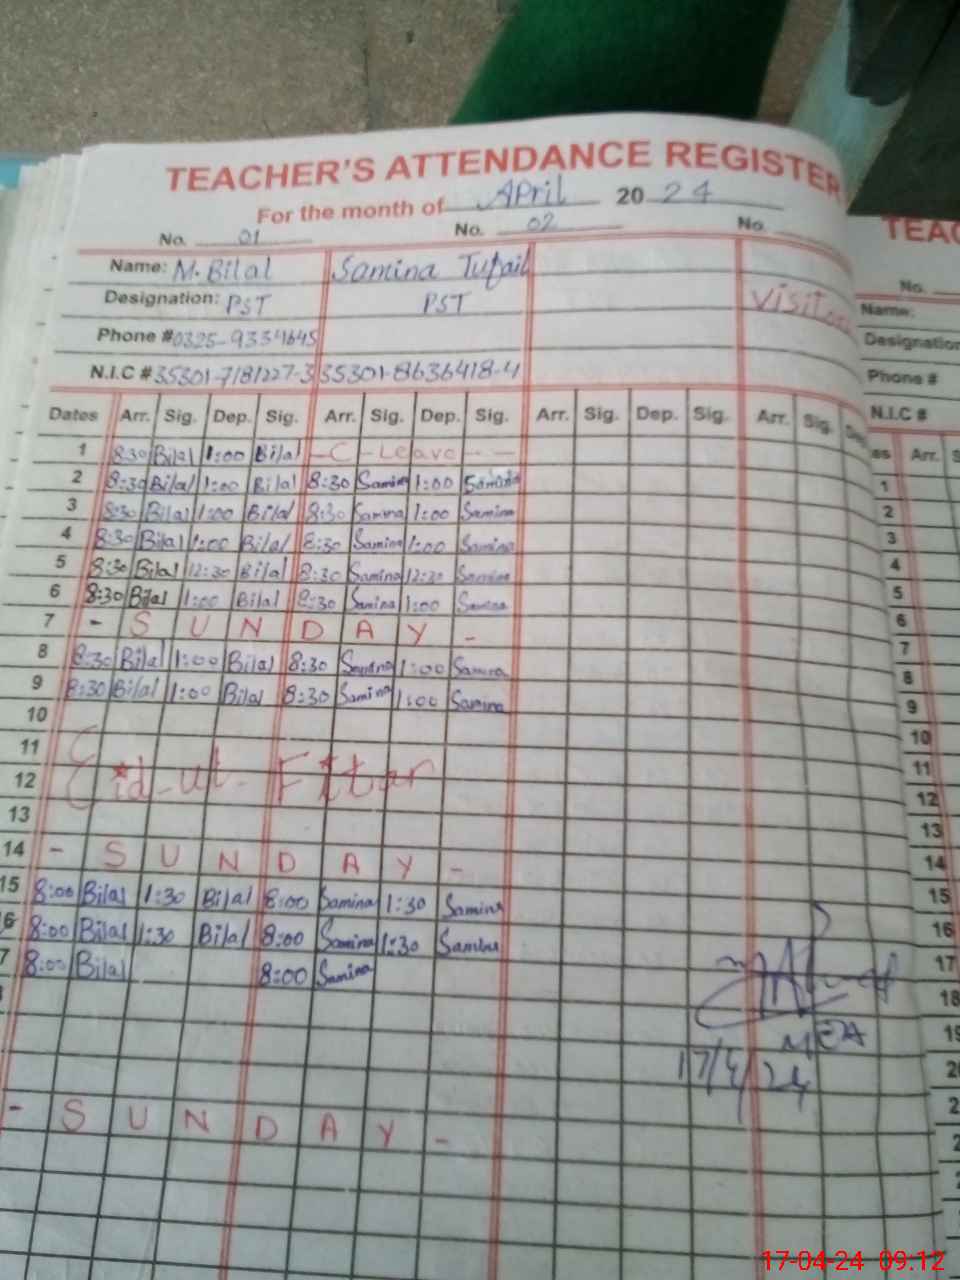 TEACHER'S ATTENDANCE REGISTER
For the month of April 20 24
No. 01 No. 02 No.
Name: M. Bilal Samina Tufail
Designation: PST PST Visitors
Phone # 0325-9334645
N.I.C # 35301-7181227-3 35301-8636418-4
Dates Arr. Sig. Dep. Sig. Arr. Sig. Dep. Sig. Arr. Sig. Dep. Sig. Arr. Sig.
1 8:30 Bilal 1:00 Bilal - C - Leave - -
2 8:30 Bilal 1:00 Bilal 8:30 Samina 1:00 Samina
3 8:30 Bilal 1:00 Bilal 8:30 Samina 1:00 Samina
4 8:30 Bilal 1:00 Bilal 8:30 Samina 1:00 Samina
5 8:30 Bilal 12:30 Bilal 8:30 Samina 12:30 Samina
6 8:30 Bilal 1:00 Bilal 8:30 Samina 1:00 Samina
7 - S U N D A Y -
8 8:30 Bilal 1:00 Bilal 8:30 Samina 1:00 Samina
9 8:30 Bilal 1:00 Bilal 8:30 Samina 1:00 Samina
10
11
12 Eid-ut-Fitar
13
14 - S U N D A Y -
15 8:00 Bilal 1:30 Bilal 8:00 Samina 1:30 Samina
6 8:00 Bilal 1:30 Bilal 8:00 Samina 1:30 Samina
7 8:00 Bilal 8:00 Samina
MEA
17/4/24
- S U N D A Y -
TEAC
No.
Name:
Designation
Phone #
N.I.C #
es Arr. S
1
2
3
4
5
6
7
8
9
10
11
12
13
14
15
16
17
18
19
20
2
2
17-04-24 09:12